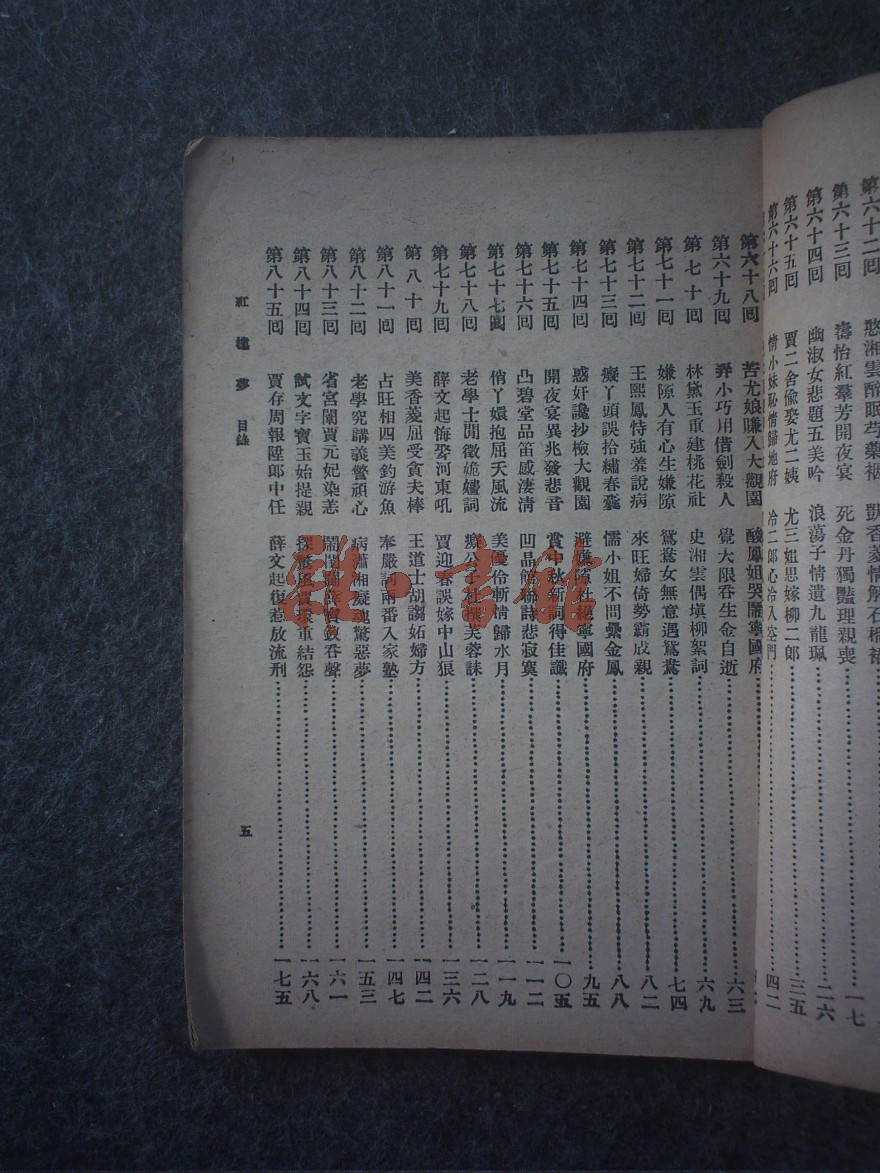 第六十二囘 憨湘雲醉眠芍藥裀 獃香菱情解石榴裙
第六十三囘 壽怡紅羣芳開夜宴 死金丹獨豔理親喪 一七
第六十四囘 幽淑女悲題五美吟 浪蕩子情遺九龍珮 二六
第六十五囘 賈二舍偷娶尤二姨 尤三姐思嫁柳二郎 三五
第六十六囘 情小妹恥情歸地府 冷二郎心冷入空門 四二
第六十八囘 苦尤娘賺入大觀園 酸鳳姐哭鬧寧國府
第六十九囘 弄小巧用借劍殺人 覺大限吞生金自逝 六三
第七十囘 林黛玉重建桃花社 史湘雲偶塡柳絮詞 六九
第七十一囘 嫌隙人有心生嫌隙 鴛鴦女無意遇鴛鴦 七四
第七十二囘 王熙鳳恃強羞說病 來旺婦倚勢霸成親 八二
第七十三囘 癡丫頭誤拾繡春囊 懦小姐不問纍金鳳 八八
第七十四囘 惑奸讒抄檢大觀園 避嫌隙杜絕寧國府 九五
第七十五囘 開夜宴異兆發悲音 賞中秋新詞得佳讖 一〇五
第七十六囘 凸碧堂品笛感淒淸 凹晶館聯詩悲寂寞 一一二
第七十七囘 俏丫嬛抱屈夭風流 美優伶斬情歸水月 一一九
第七十八囘 老學士閒徵姽嫿詞 癡公子杜撰芙蓉誄 一二八
第七十九囘 薛文起悔娶河東吼 賈迎春誤嫁中山狼 一三六
第八十囘 美香菱屈受貪夫棒 王道士胡謅妬婦方 一四二
第八十一囘 占旺相四美釣游魚 奉嚴詞兩番入家塾 一四七
第八十二囘 老學究講義警頑心 病瀟湘癡魂驚惡夢 一五三
第八十三囘 省宮闈賈元妃染恙 鬧閨閫薛寶釵吞聲 一六一
第八十四囘 試文字寶玉始提親 探驚風賈環重結怨 一六八
第八十五囘 賈存周報陞郎中任 薛文起復惹放流刑 一七五
紅樓夢 目錄 五